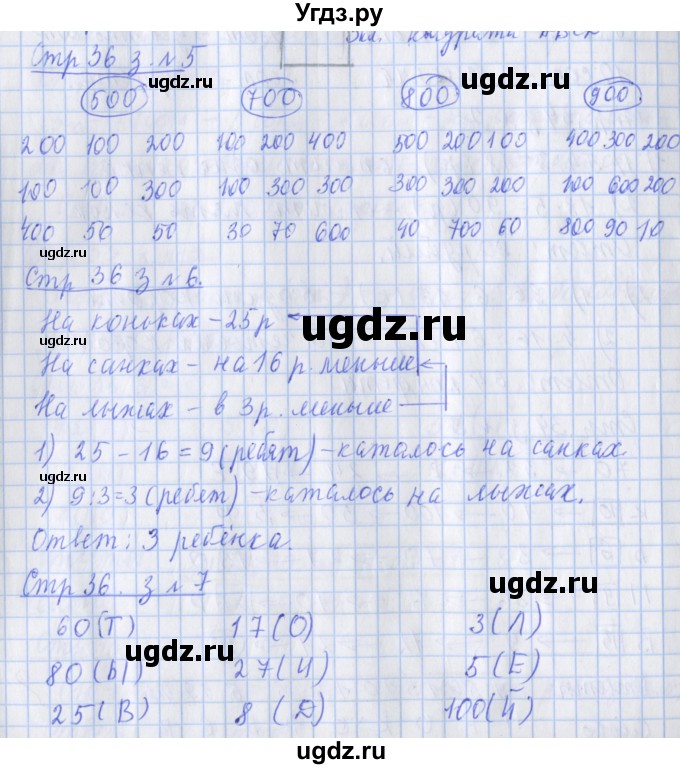 Угдз.ру
Стр 36 з. №5
ugdz.ru ugdz.ru ugdz.ru
500 700 800 900
200 100 200 100 200 400 500 200 100 400 300 200
100 100 300 100 300 300 300 300 200 100 600 200
400 50 50 30 70 600 40 700 60 800 90 10
ugdz.ru
Стр 36 з №6.
На коньках - 25 р
ugdz.ru
На санках - на 16 р. меньше
На лыжах - в 3 р. меньше
1) 25 - 16 = 9 (ребят) - каталось на санках.
ugdz.ru
2) 9 : 3 = 3 (ребят) - каталось на лыжах.
Ответ: 3 ребёнка.
Стр 36. з №7
ugdz.ru
60 (Т) 17 (О) 3 (Л)
ugdz.ru
80 (Ы) 27 (И) 5 (Е)
25 (В) 8 (Д) 100 (Й)
ugdz.ru ugdz.ru
ugdz.ru